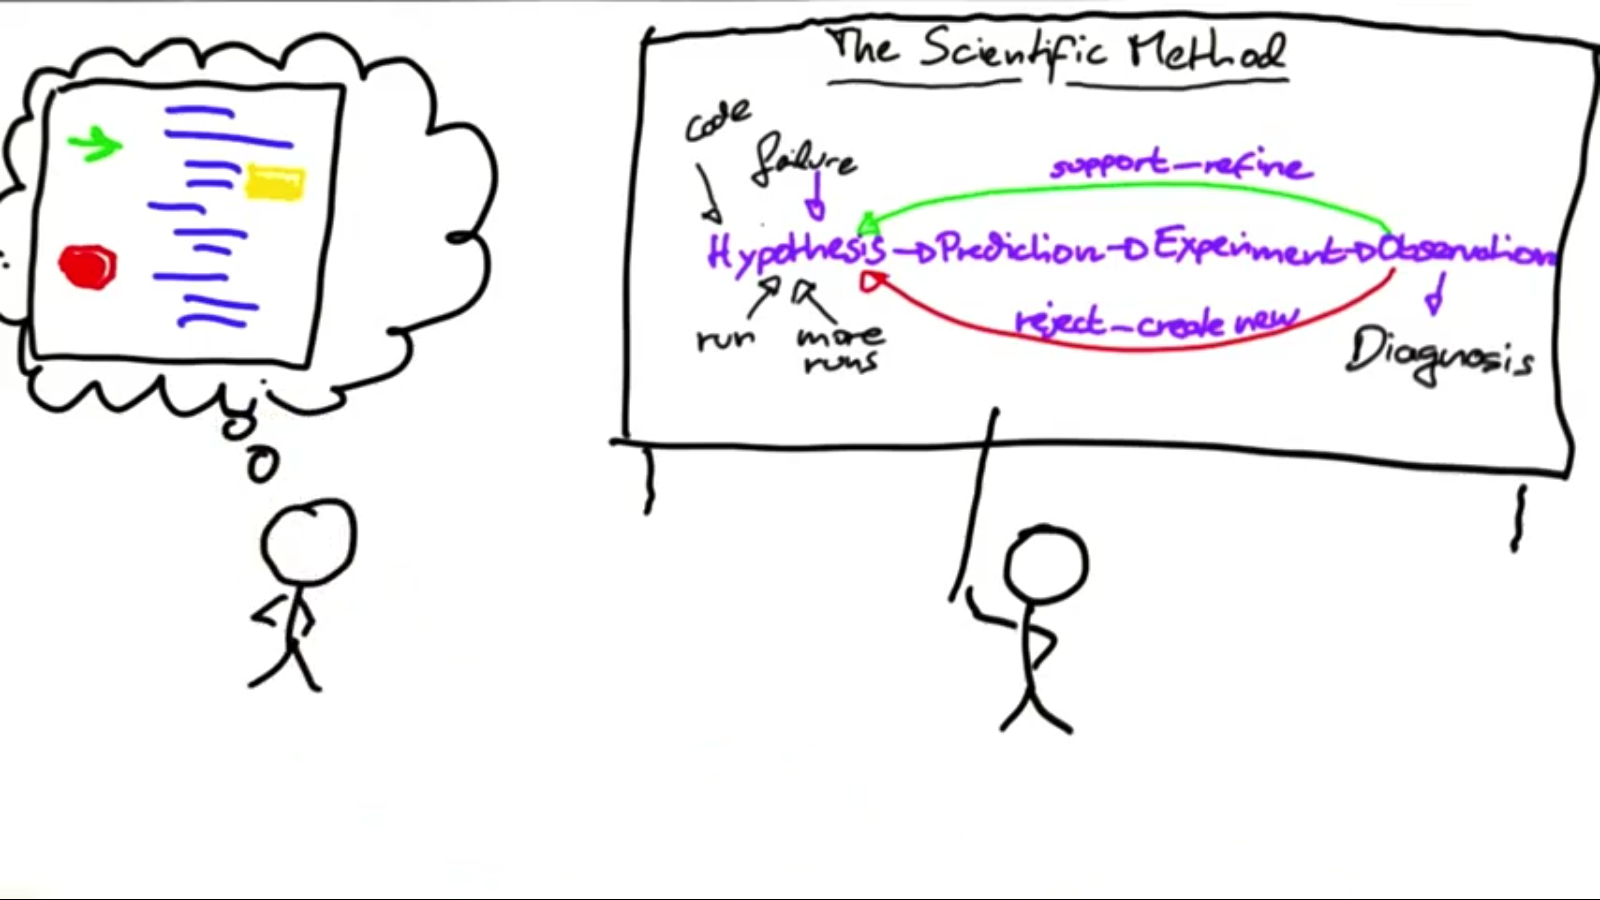 The Scientific Method
code
failure
support-refine
Hypothesis Prediction Experiment Observation
reject-create new
run
more
runs
Diagnosis